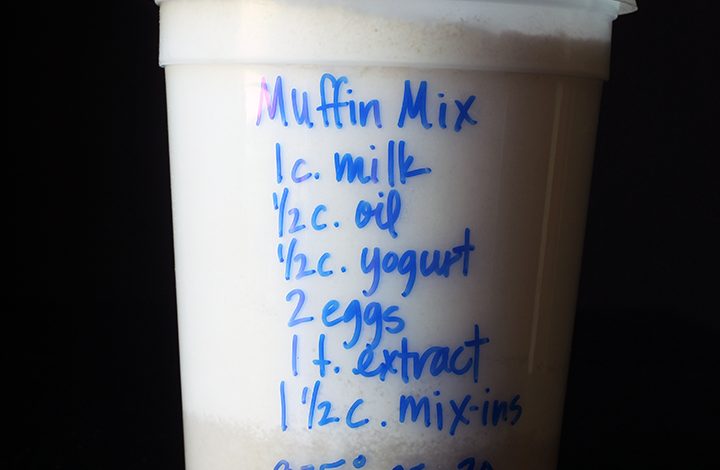 Muffin Mix
1 c. milk
1/2 c. oil
1/2 c. yogurt
2 eggs
1 t. extract
1 1/2 c. mix-ins